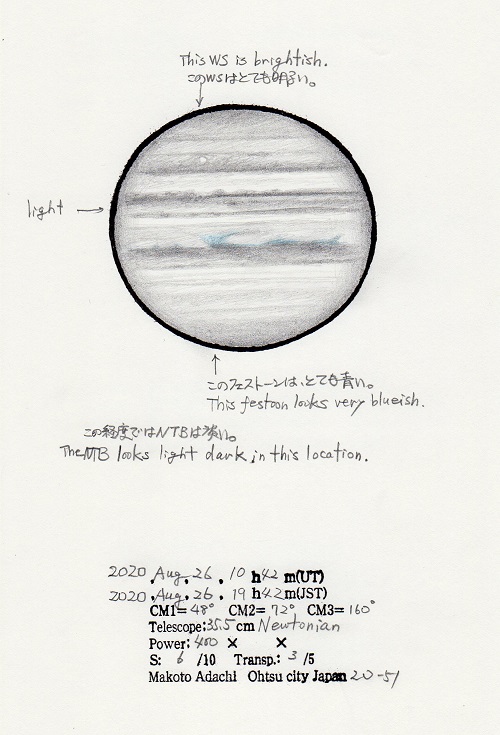 This WS is brightish.
このWSはとても明るい。
light
このフェストーンは、とても青い。
This festoon looks very blueish.
この経度ではNTBは淡い。
The NTB looks light dark in this location.
2020 Aug. 26. 10 h42 m(UT)
2020 .Aug. 26. 19 h42m(JST)
CM1= 48° CM2= 72° CM3= 160°
Telescope:35.5 cm Newtonian
Power: 400 × ×
S: 6 /10 Transp.: 3 /5
Makoto Adachi Ohtsu city Japan 20-51